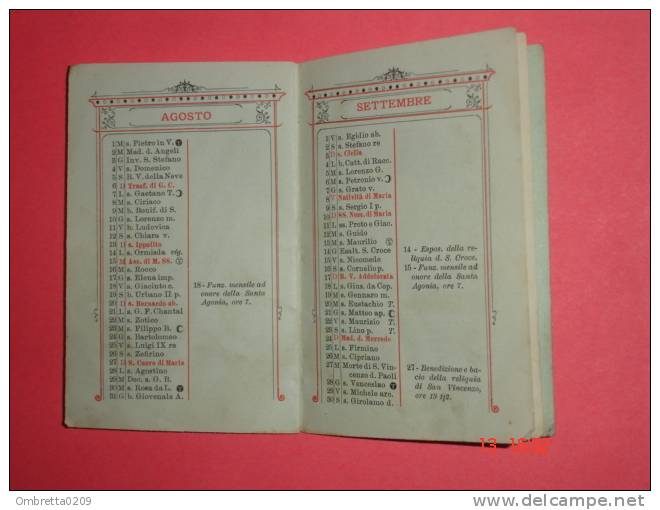 AGOSTO
1 M s. Pietro in V.
2 M Mad. d. Angeli
3 G Inv. S. Stefano
4 V s. Domenico
5 S B. V. della Neve
6 D Trasf. di G. C.
7 L s. Gaetano T.
8 M s. Ciriaco
9 M s. Bonif. di S.
10 G s. Lorenzo m.
11 V b. Ludovica
12 S s. Chiara v.
13 D s. Ippolito
14 L s. Ormisda vig.
15 M Ass. di M. SS.
16 M s. Rocco
17 G s. Elena imp.
18 V s. Giacinto c.
19 S b. Urbano II p.
20 D s. Bernardo ab.
21 L s. G. F. Chantal
22 M s. Zotico
23 M s. Filippo B.
24 G s. Bartolomeo
25 V s. Luigi IX re
26 S s. Zefirino
27 D S. Cuore di Maria
28 L s. Agostino
29 M Dec. s. G. B.
30 M s. Rosa da L.
31 G b. Giovenale A.
18 - Funz. mensile ad
onore della Santa
Agonia, ore 7.
SETTEMBRE
1 V s. Egidio ab.
2 S s. Stefano re
3 D s. Clelia
4 L b. Catt. di Racc.
5 M s. Lorenzo G.
6 M s. Petronio v.
7 G s. Grato v.
8 V Natività di Maria
9 S s. Sergio I p.
10 D SS. Nom. di Maria
11 L ss. Proto e Giac.
12 M s. Guido
13 M s. Maurilio
14 G Esalt. S. Croce
15 V s. Nicomede
16 S s. Cornelio p.
17 D B. V. Addolorata
18 L s. Gius. da Cop.
19 M s. Gennaro m.
20 M s. Eustachio T.
21 G s. Matteo ap.
22 V s. Maurizio T.
23 S s. Lino p. T.
24 D Mad. d. Mercede
25 L s. Firmino
26 M s. Cipriano
27 M Morte di S. Vin-
cenzo d. Paoli
28 G s. Venceslao
29 V s. Michele arc.
30 S s. Girolamo d.
14 - Espos. della re-
liquia d. S. Croce.
15 - Funz. mensile ad
onore della Santa
Agonia, ore 7.
27 - Benedizione e ba-
cio della reliquia
di San Vincenzo,
ore 19 1/2.
Ombretta0209
http://www.delcampe.net